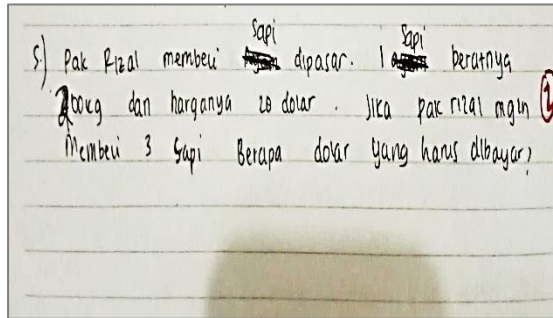 Sapi Sapi
5.) Pak Rizal membeli dipasar. 1 beratnya
200kg dan harganya 20 dolar. Jika pak rizal ingin
Membeli 3 Sapi Berapa dolar yang harus dibayar?